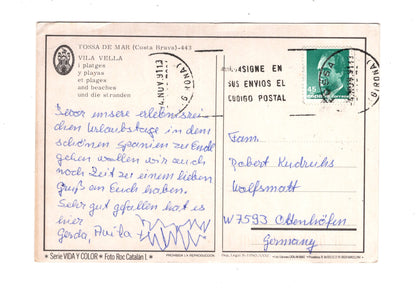 TOSSA DE MAR (Costa Brava)-443
VILA VELLA
i platges
y playas
et plages
and beaches
und die stranden
CONSIGNE EN
SUS ENVIOS EL
CODIGO POSTAL
45
Bevor unsere erlebnisrei-
chen Urlaubstage in dem
schönen Spanien zu Ende
gehen wollen wir auch
noch Zeit zu einem lieben
Gruß an Euch haben.
Sehr gut gefallen hat es
hier
Gerda, Anita
Fam.
Robert
Wolfsmatt
W 7593 Ottenhöfen
Germany
Serie VIDA Y COLOR
Foto Roc Catalán I.
PROHIBIDA LA REPRODUCCIÓN